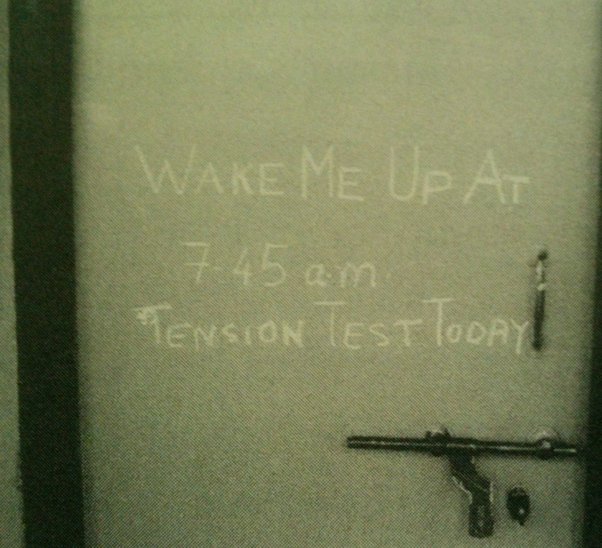 WAKE ME UP AT
7-45 a.m.
TENSION TEST TODAY